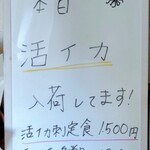 本日
活イカ
入荷してます!
活イカ刺定食1500円